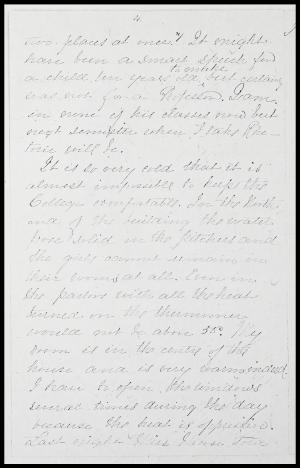 4.
two places at once." It might
have been a smart speech for
a child ten years old, to make but certainly
was not for a Professor. I am
in none of his classes now but
next semester when I take Rhe-
toric will be.
It is so very cold that it is
almost impossible to keep the
College comfortable. In the North
end of the building the water
froze solid in the pitchers and
the girls cannot remain in
their rooms at all. Even in
the parlors with all the heat
turned on the thermometer
would not go above 55°. My
room is in the centre of the
house and is very warm indeed.
I have to open the windows
several times during the day
because the heat is oppressive.
Last night Miss